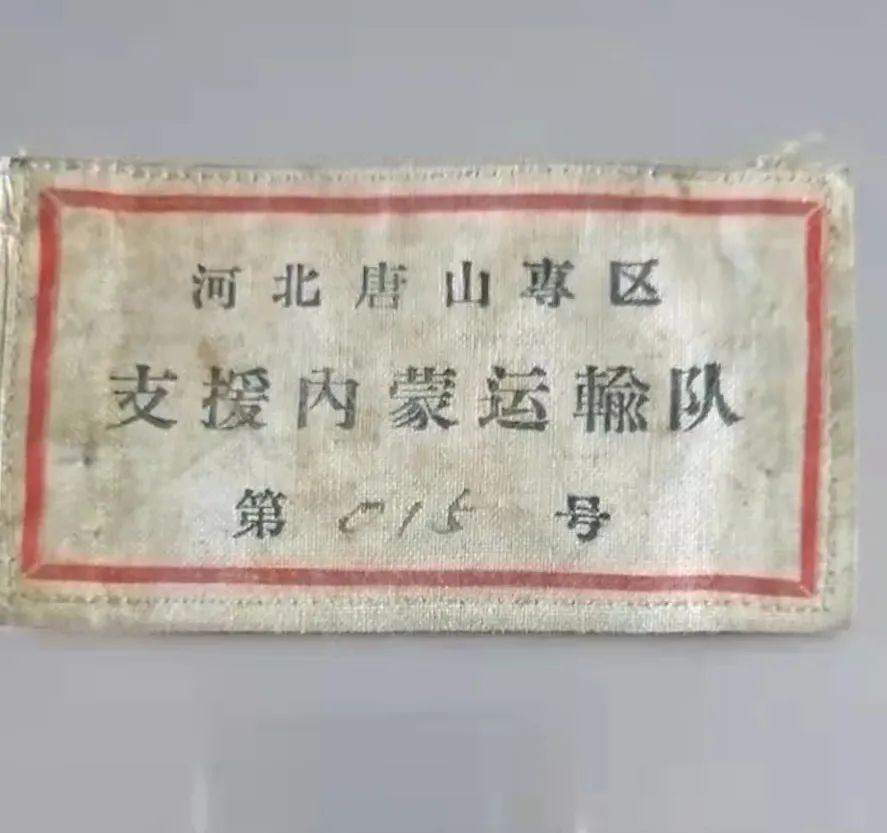 河北唐山専区
支援内蒙运輸队
第 015 号